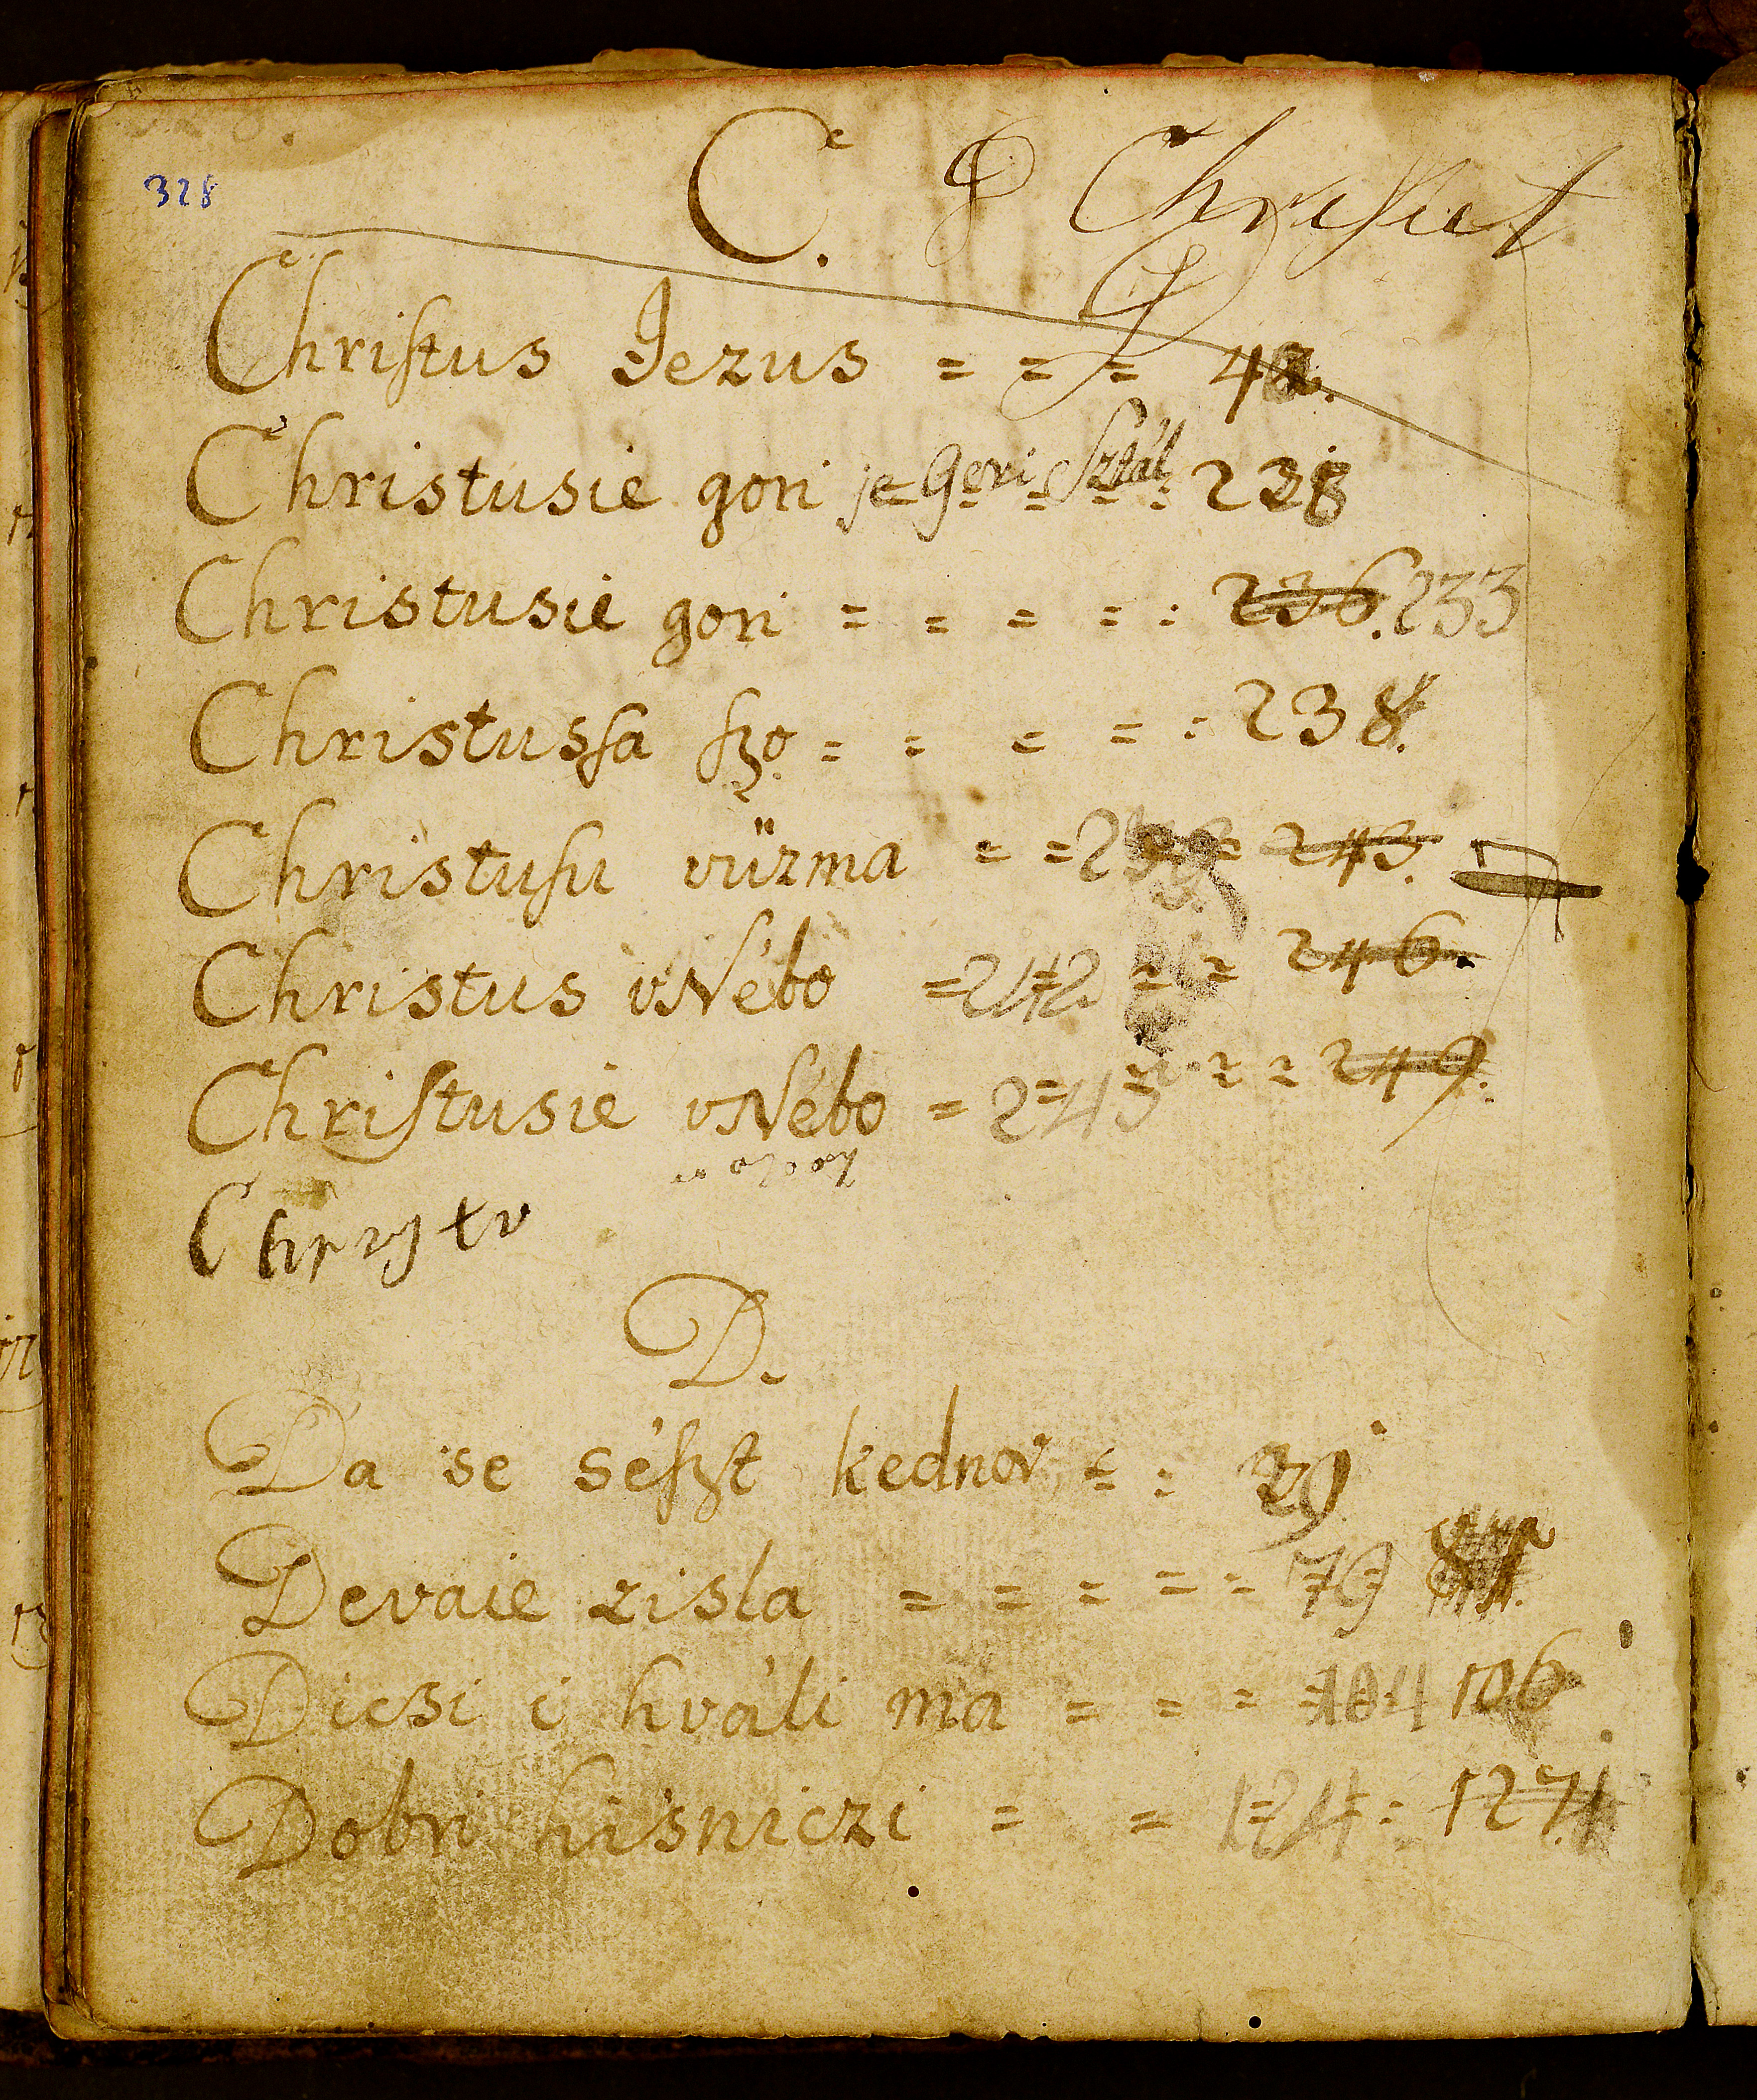 328
C.
Chriſtus Jezus = = = 42.
Christusie gori je Gori Sztál 238
Christusie gori = = = = : 236. 233
Christusſa ſzo = = = = : 238.
Christuſu vüzma = = 243.
Christus vNébo = 242 = = 246.
Chriſtusie vNébo = 243 = = 249.
D.
Da se séſzt kednov = : 29
Devaie zisla = = = = = 79
Dicsi i hváli ma = = = 104 106
Dobri hisniczi = = 124 : 127